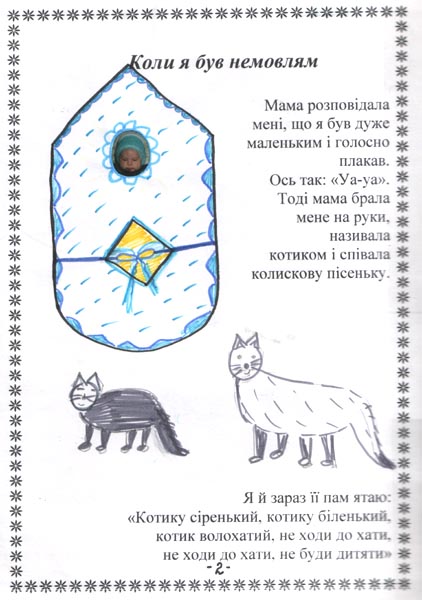 Коли я був немовлям
Мама розповідала
мені, що я був дуже
маленьким і голосно
плакав.
Ось так: «Уа-уа».
Тоді мама брала
мене на руки,
називала
котиком і співала
колискову пісеньку.
Я й зараз її пам ятаю:
«Котику сіренький, котику біленький,
котик волохатий, не ходи до хати,
не ходи до хати, не буди дитяти»
-2-